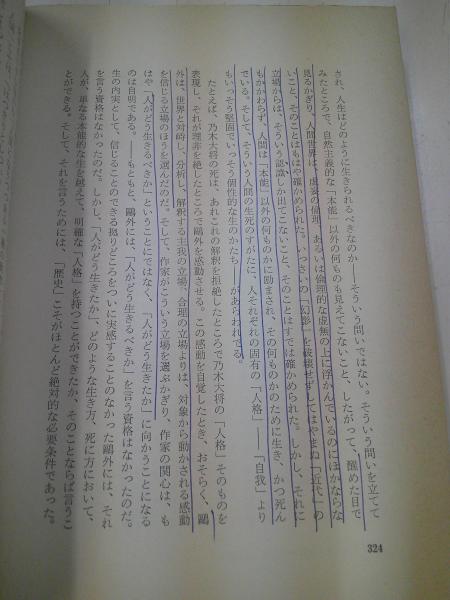 され、人生はどのように生きられるべきなのか――そういう問いではない。そういう問いを立てて
みたところで、自然主義的な「本能」以外の何ものも見えてこないこと、したがって、醒めた目で
見るかぎり、人間世界は、虚妄の倫理、あるいは倫理的な虚無の上に浮かんでいるのにほかならな
いこと、そのことはもはや確かめられた。いっさいの「幻影」を破壊せずしてはやまぬ「近代」の
立場からは、そういう認識しか出てこないこと、そのことはすでに確かめられた。しかし、それに
もかかわらず、人間は「本能」以外の何ものかに励まされ、その何ものかのために生き、かつ死ん
でいる。そして、そういう人間の生死のすがたに、人それぞれの固有の「人格」――「自我」より
もいっそう堅固でいっそう個性的な生のかたち――があらわれてる。
たとえば、乃木大将の死は、あれこれの解釈を拒絶したところで乃木大将の「人格」そのものを
表現し、それが理非を絶したところで鷗外を感動させる。この感動を自覚したとき、おそらく、鷗
外は、世界と対峙し、分析し、解釈する主我の立場、合理の立場よりは、対象から動かされる感動
を信じる立場のほうを選んだのだ。そして、作家がこういう立場を選ぶかぎり、作家の関心は、も
はや「人がどう生きるべきか」ということにではなく、「人がどう生きたか」に向かうことになる
のは自明である。――もともと、鷗外には、「人がどう生きるべきか」を言う資格はなかったのだ。
生の内実として、信じることのできる拠りどころをついに実感することのなかった鷗外には、それ
を言う資格はなかったのだ。しかし、「人がどう生きたか」、どのような生き方、死に方において、
人が、単なる本能的な生を越えて、明確な「人格」を持つことができたか、そのことならば言うこ
とができる。そして、それを言うためには、「歴史」こそがほとんど絶対的な必要条件であった。
324